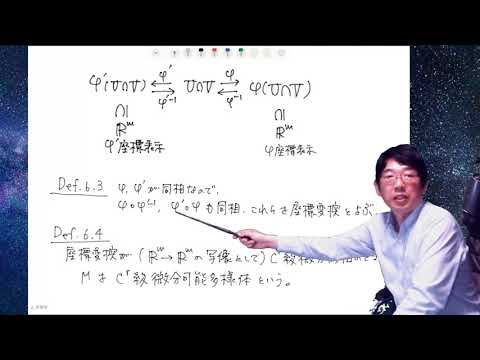 φ'(U∩V) ⇄ U∩V ⇄ φ(U∩V)
φ' φ'⁻¹ φ φ⁻¹
∩| ∩|
ℝᵐ ℝᵐ
φ'座標表示 φ座標表示
Def.6.3 φ, φ'が同相なので、
φ∘φ'⁻¹, φ'∘φ も同相. これらを座標変換とよぶ
Def.6.4
座標変換が (ℝᵐ→ℝᵐの写像として) Cʳ級微分
Mを Cʳ級微分可能多様体という。